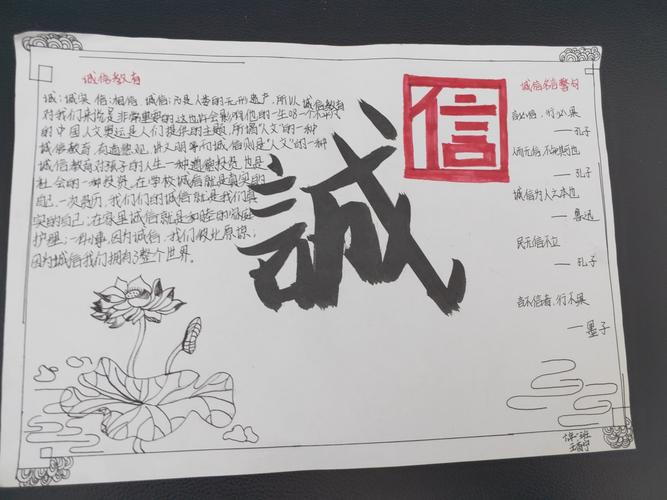 诚信教育
诚:诚实 信:相信 诚信:乃是人类的无形遗产,所以诚信教育
对我们来说是非常重要的这也许会影响他的一生的
的中国人文奥运是人们提供的主题,所谓"人文"的一种
诚信教育,有道德观,讲文明等而诚信则是"人文"的一种
诚信教育对孩子的人生一种道德投资,也是
社会的一种投资,在学校诚信就是真实的
自己,一次我们的诚信就是我们真
实的自己;在家里诚信就是和睦的
护理;一件小事,因为诚信,我们彼此原谅;
因为诚信我们拥有了整个世界。
誠
信
诚信名言警句
言必信,行必果
——孔子
人而无信,不知其可也
——孔子
诚信为人之本也
——鲁迅
民无信不立
——孔子
言不信者,行不果
——墨子
班